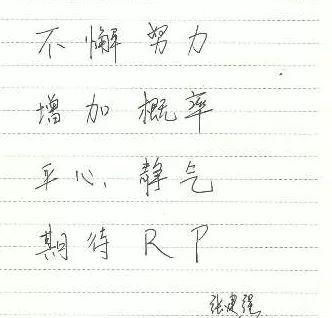 不懈努力
增加概率
平心、静气
期待RP
张建强